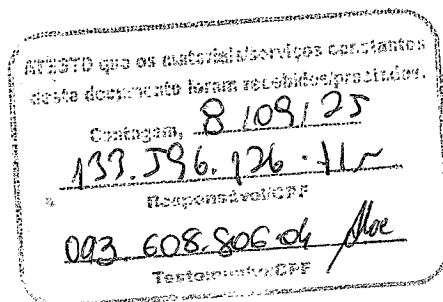 ATESTO que os materiais/serviços constantes
deste documento foram recebidos/prestados.
Contagem, 8/09/25
133.596.126
Responsável/CPF
093 608.806-04
Testemunha/CPF